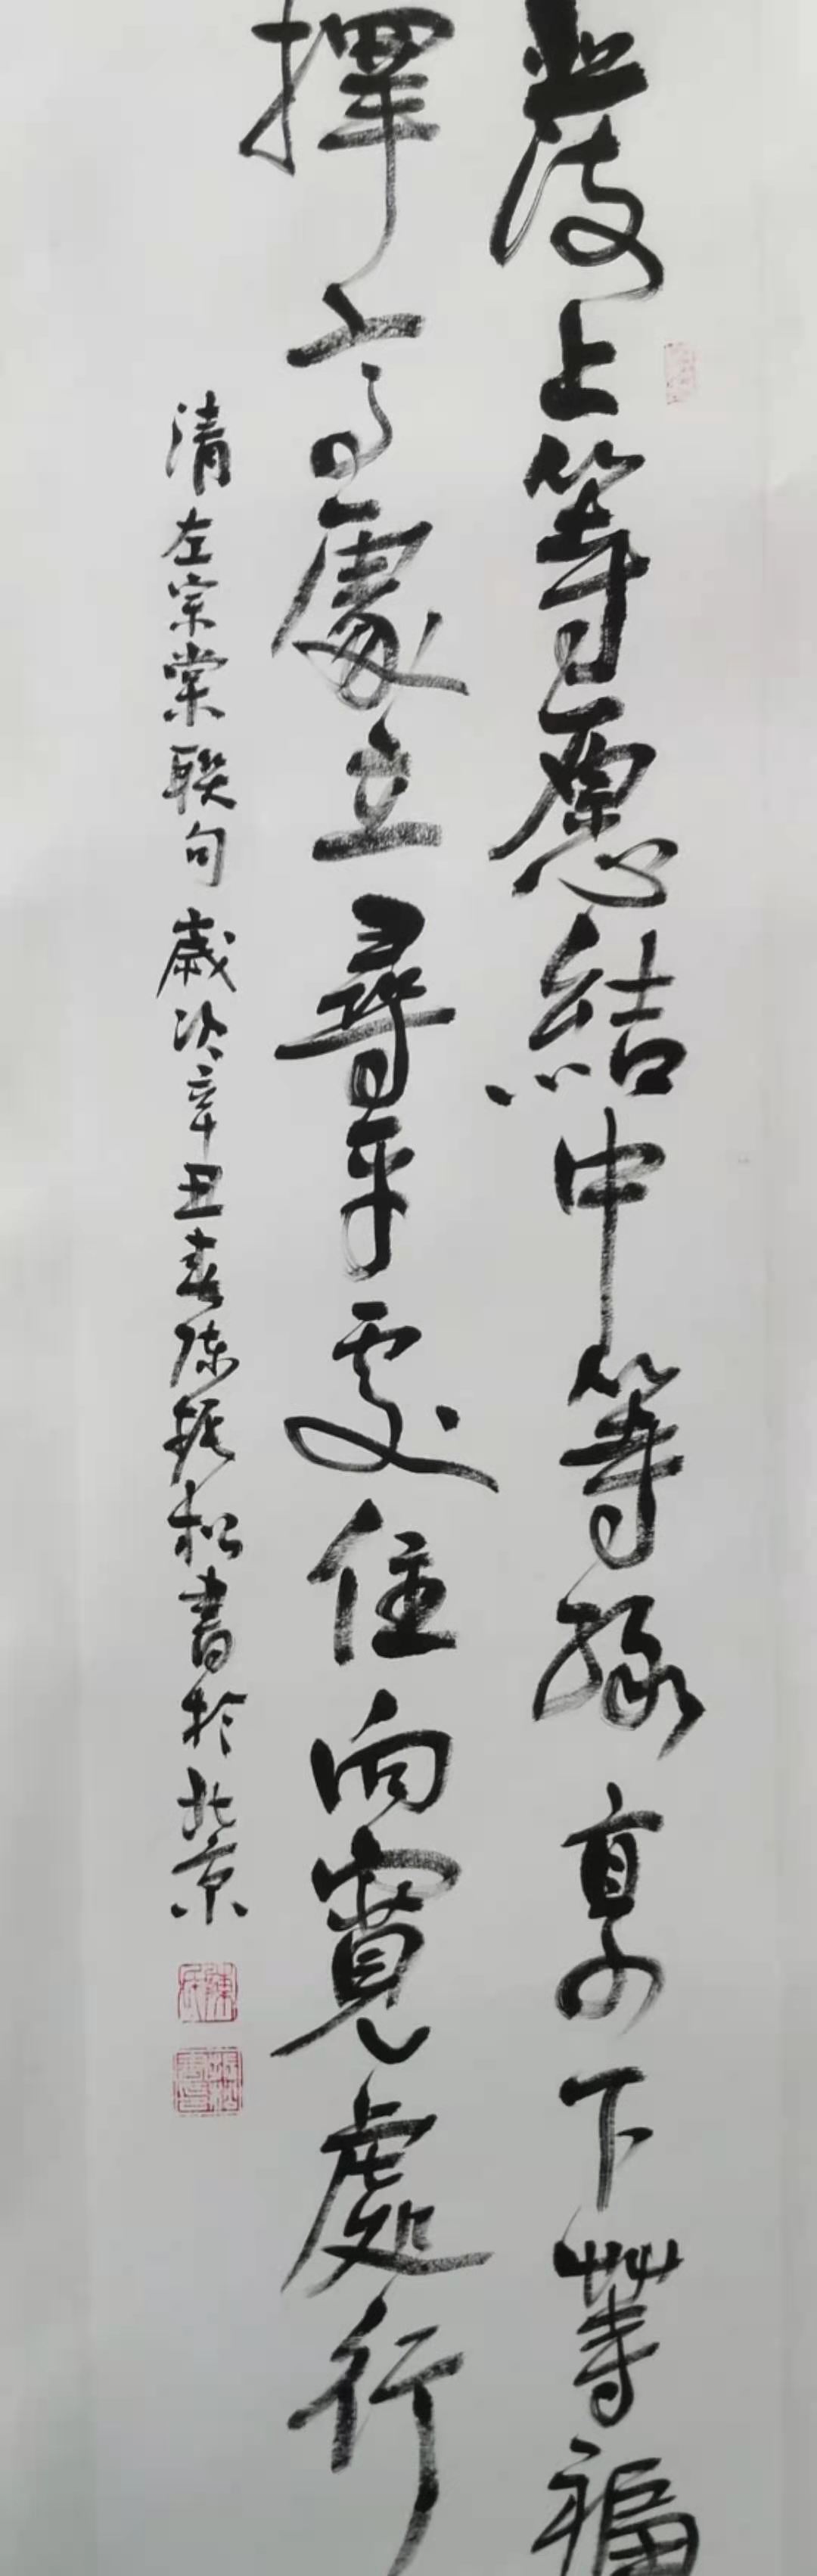 發上等愿結中等緣享下等福
擇高處立尋平處住向寬處行
清左宗棠聯句歲次辛丑春陈振松書於北京